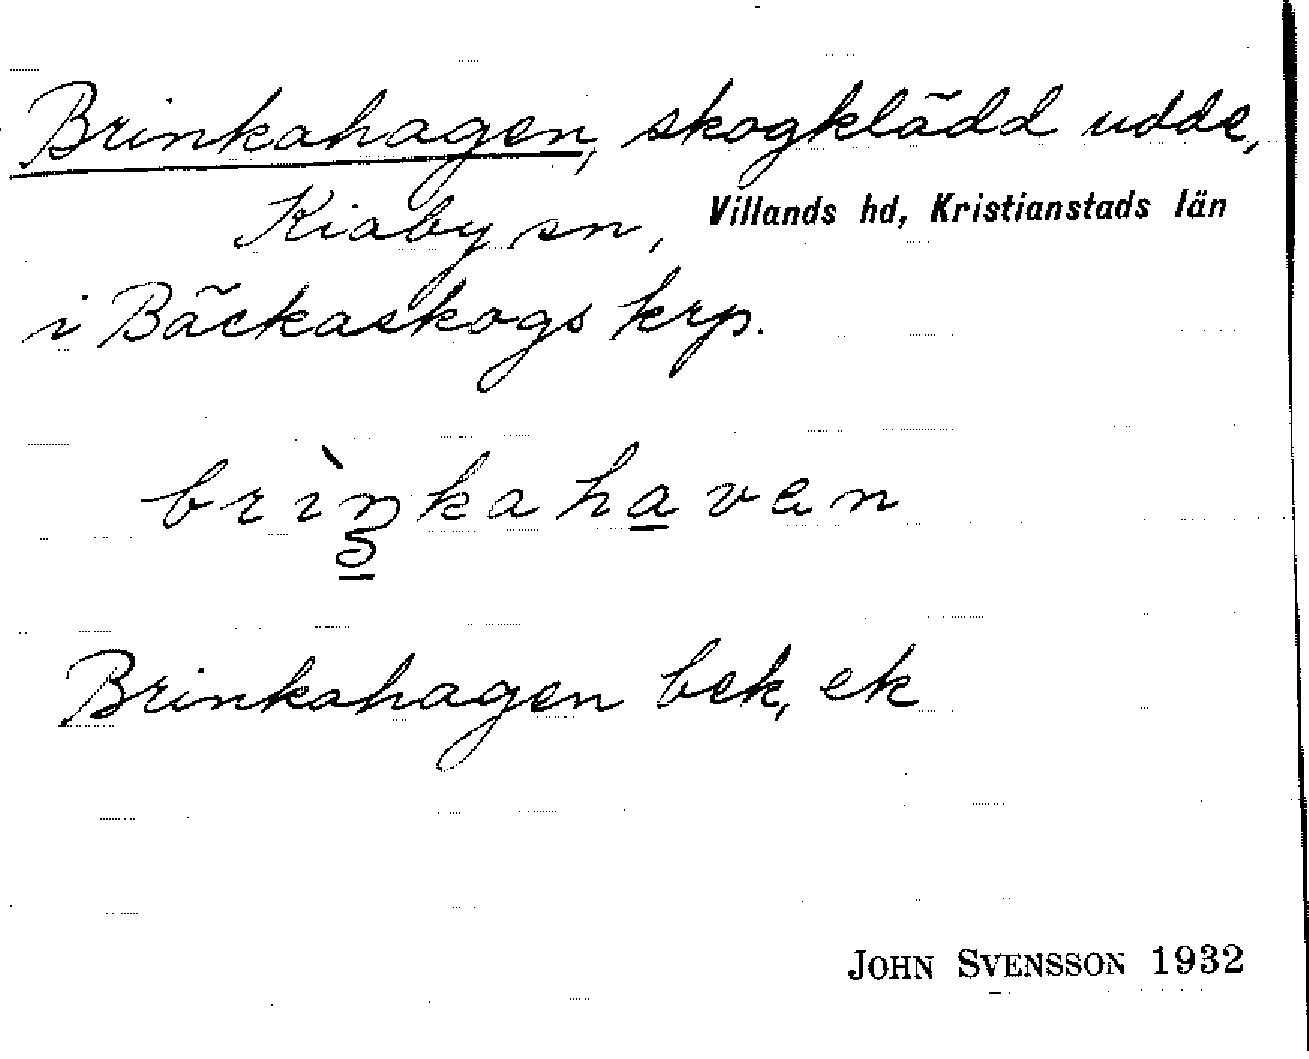 Brinkahagen, skogklädd udde,
Kiaby sn, Villands hd, Kristianstads län
i Bäckaskogs krp.
brìŋkahavan
Brinkahagen bek, ek
JOHN SVENSSON 1932